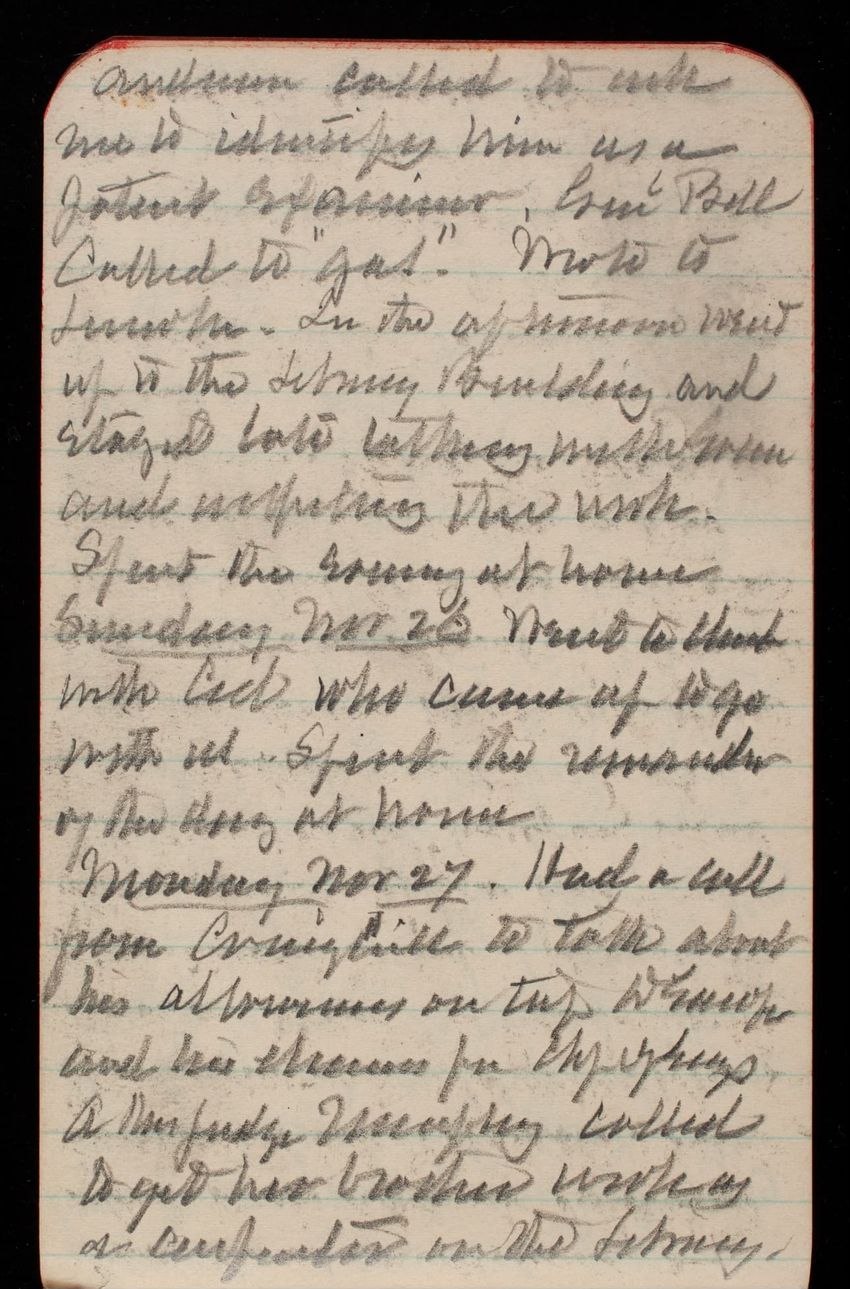 called to ask
me to identify him as a
Patent Examiner. Genl Bell
Called to "gas". Wrote to
Lincoln. In the afternoon went
up to the Library Building and
stayed late talking with Green
and inspecting the work.
Spent the evening at home
Sunday Nov. 26 Went to church
with Ced who came up to go
with us. Spent the remainder
of the day at home
Monday Nov 27. Had a call
from Craighill to talk about
his allowances on trip to Europe
and his chances for Chf of Engs.
A Mrs Judge Murphy called
to get her brother work as
a carpenter on the Library.